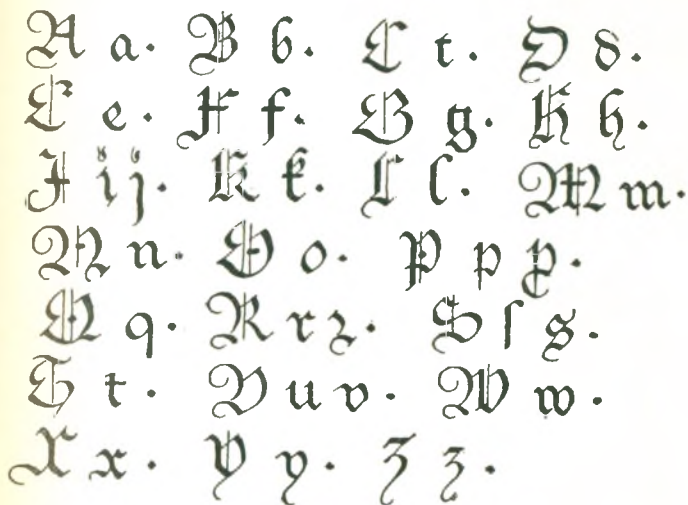 A a. B b. C c. D d.
E e. F f. G g. H h.
I i j. K k. L l. M m.
N n. O o. P p p.
Q q. R r ꝛ. S ſ s.
T t. V u v. W w.
X x. Y y. Z z.